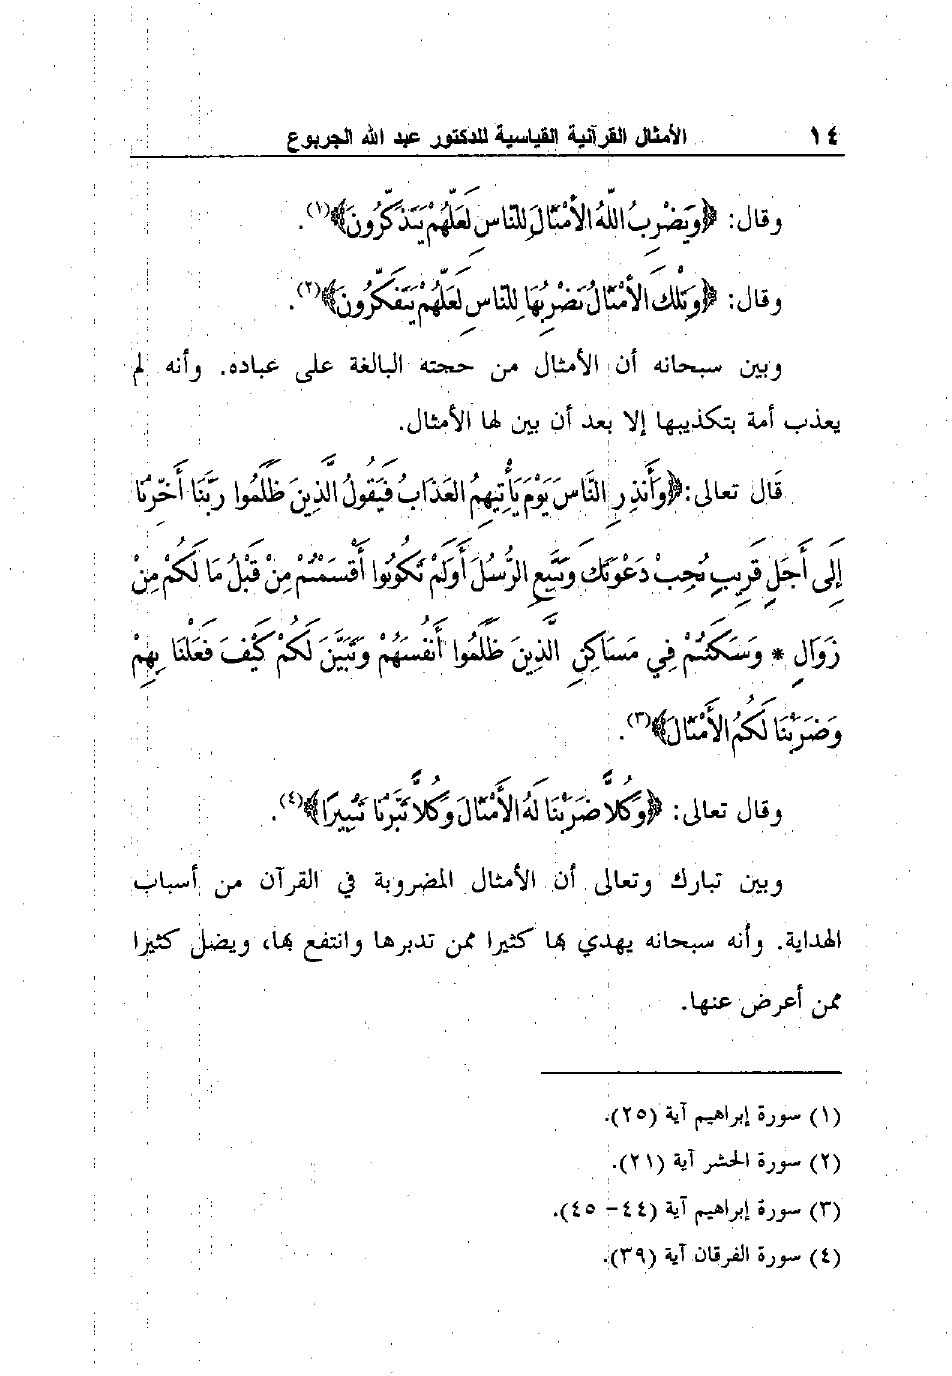 ١٤ الأمثال القرآنية القياسية للدكتور عبد الله الجربوع
وقال: ﴿وَيَضْرِبُ اللَّهُ الأَمْثَالَ لِلنَّاسِ لَعَلَّهُمْ يَتَذَكَّرُونَ﴾(١).
وقال: ﴿وَتِلْكَ الأَمْثَالُ نَضْرِبُهَا لِلنَّاسِ لَعَلَّهُمْ يَتَفَكَّرُونَ﴾(٢).
وبين سبحانه أن الأمثال من حجته البالغة على عباده. وأنه لم
يعذب أمة بتكذيبها إلا بعد أن بين لها الأمثال.
قال تعالى: ﴿وَأَنذِرِ النَّاسَ يَوْمَ يَأْتِيهِمُ العَذَابُ فَيَقُولُ الَّذِينَ ظَلَمُوا رَبَّنَا أَخِّرْنَا
إِلَى أَجَلٍ قَرِيبٍ نُجِبْ دَعْوَتَكَ وَنَتَّبِعِ الرُّسُلَ أَوَلَمْ تَكُونُوا أَقْسَمْتُمْ مِنْ قَبْلُ مَا لَكُمْ مِنْ
زَوَالٍ * وَسَكَنتُمْ فِي مَسَاكِنِ الَّذِينَ ظَلَمُوا أَنفُسَهُمْ وَتَبَيَّنَ لَكُمْ كَيْفَ فَعَلْنَا بِهِمْ
وَضَرَبْنَا لَكُمُ الأَمْثَالَ﴾(٣).
وقال تعالى: ﴿وَكُلاًّ ضَرَبْنَا لَهُ الأَمْثَالَ وَكُلاًّ تَبَّرْنَا تَتْبِيرًا﴾(٤).
وبين تبارك وتعالى أن الأمثال المضروبة في القرآن من أسباب
الهداية. وأنه سبحانه يهدي بها كثيرا ممن تدبرها وانتفع بها، ويضل كثيرا
ممن أعرض عنها.
(١) سورة إبراهيم آية (٢٥).
(٢) سورة الحشر آية (٢١).
(٣) سورة إبراهيم آية (٤٤- ٤٥).
(٤) سورة الفرقان آية (٣٩).